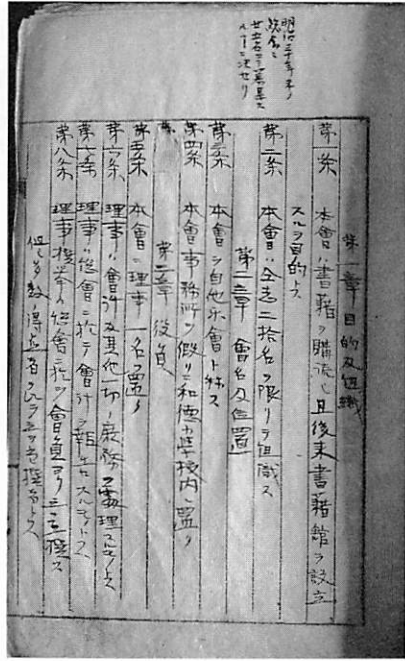 明治三十年
総会
第一章 目的及組織
第一条 本會ハ書籍ヲ購読シ且後来書籍館ヲ設立
スルヲ目的トス
第二条 本會ハ仝志二拾名ヲ限リテ組織ス
第二章 會名及位置
第三条 本會ヲ自他楽會ト称ス
第四条 本會事務所ヲ假リニ和徳小学校内ニ置ク
第三章 役員
第五条 本會ニ理事一名ヲ置ク
第六条 理事ハ會計及其他一切ノ庶務ヲ処理スルモノトス
第七条 理事ハ総會ニ於テ會計ヲ報告スルモノトス
第八条 理事撰挙ハ総會ニ於テ會員ヨリ互撰ス
但シ多数ノ得点者